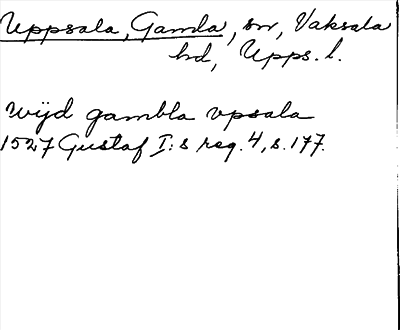 Uppsala, Gamla, sn, Vaksala
hd, Upps. l.
Wijd gambla vpsala
1527 Gustaf I:s reg. 4, s. 177.